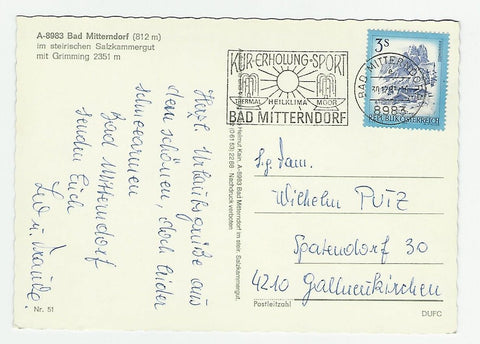 A-8983 Bad Mitterndorf (812 m)
im steirischen Salzkammergut
mit Grimming 2351 m
Herzl. Urlaubsgrüße aus
dem schönen, doch leider
schneearmen
Bad Mitterndorf
senden Euch
Leo u. Traude.
Nr. 51
Helmut Kien, A-8983 Bad Mitterndorf im steir. Salzkammergut.
(0 61 53) 22 88 Nachdruck verboten
KUR·ERHOLUNG·SPORT
THERMAL HEILKLIMA MOOR
BAD MITTERNDORF
BAD MITTERNDORF
8983
3 S
REPUBLIK ÖSTERREICH
Fam.
Wilhelm PUTZ
Spatendorf 30
4210 Gallneukirchen
Postleitzahl
DUFC